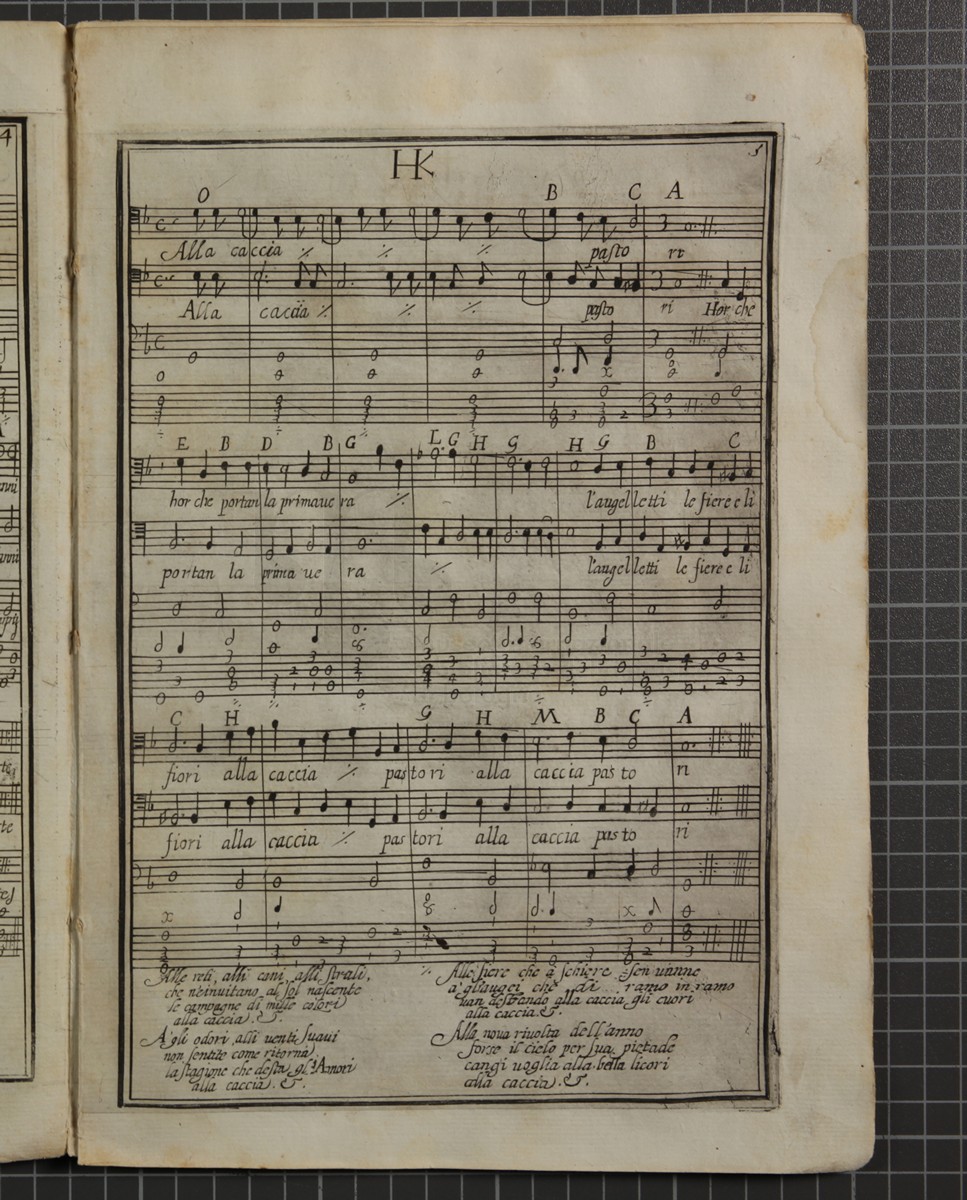 HK
5
O B C A
Alla caccia ٪ ٪ ٪ pasto ri
Alla caccia ٪ ٪ ٪ pasto ri Hor che
E B D B G L G H G H G B C
hor che portan la primaue ra ٪ l'augelletti le fiere e li
portan la prima ue ra ٪ l'augelletti le fiere e li
C H G H M B C A
fiori alla caccia ٪ pastori alla caccia pasto ri
fiori alla caccia ٪ pastori alla caccia pasto ri
Alle reti, alli cani, alli strali,
che n'einuitano al sol nascente
le campagne di mille colori
alla caccia. &.
A gli odori, alli uenti suaui
non sentite come ritorna
la stagione che desta gl'Amori
alla caccia. &.
Alle fiere che a schiere sen uanno
a gl'augei che di ramo in ramo
uan destando alla caccia gli cuori
alla caccia. &.
Alla nova riuolta dell'anno
forse il cielo per sua pietade
cangi uoglia alla bella licori
alla caccia. &.